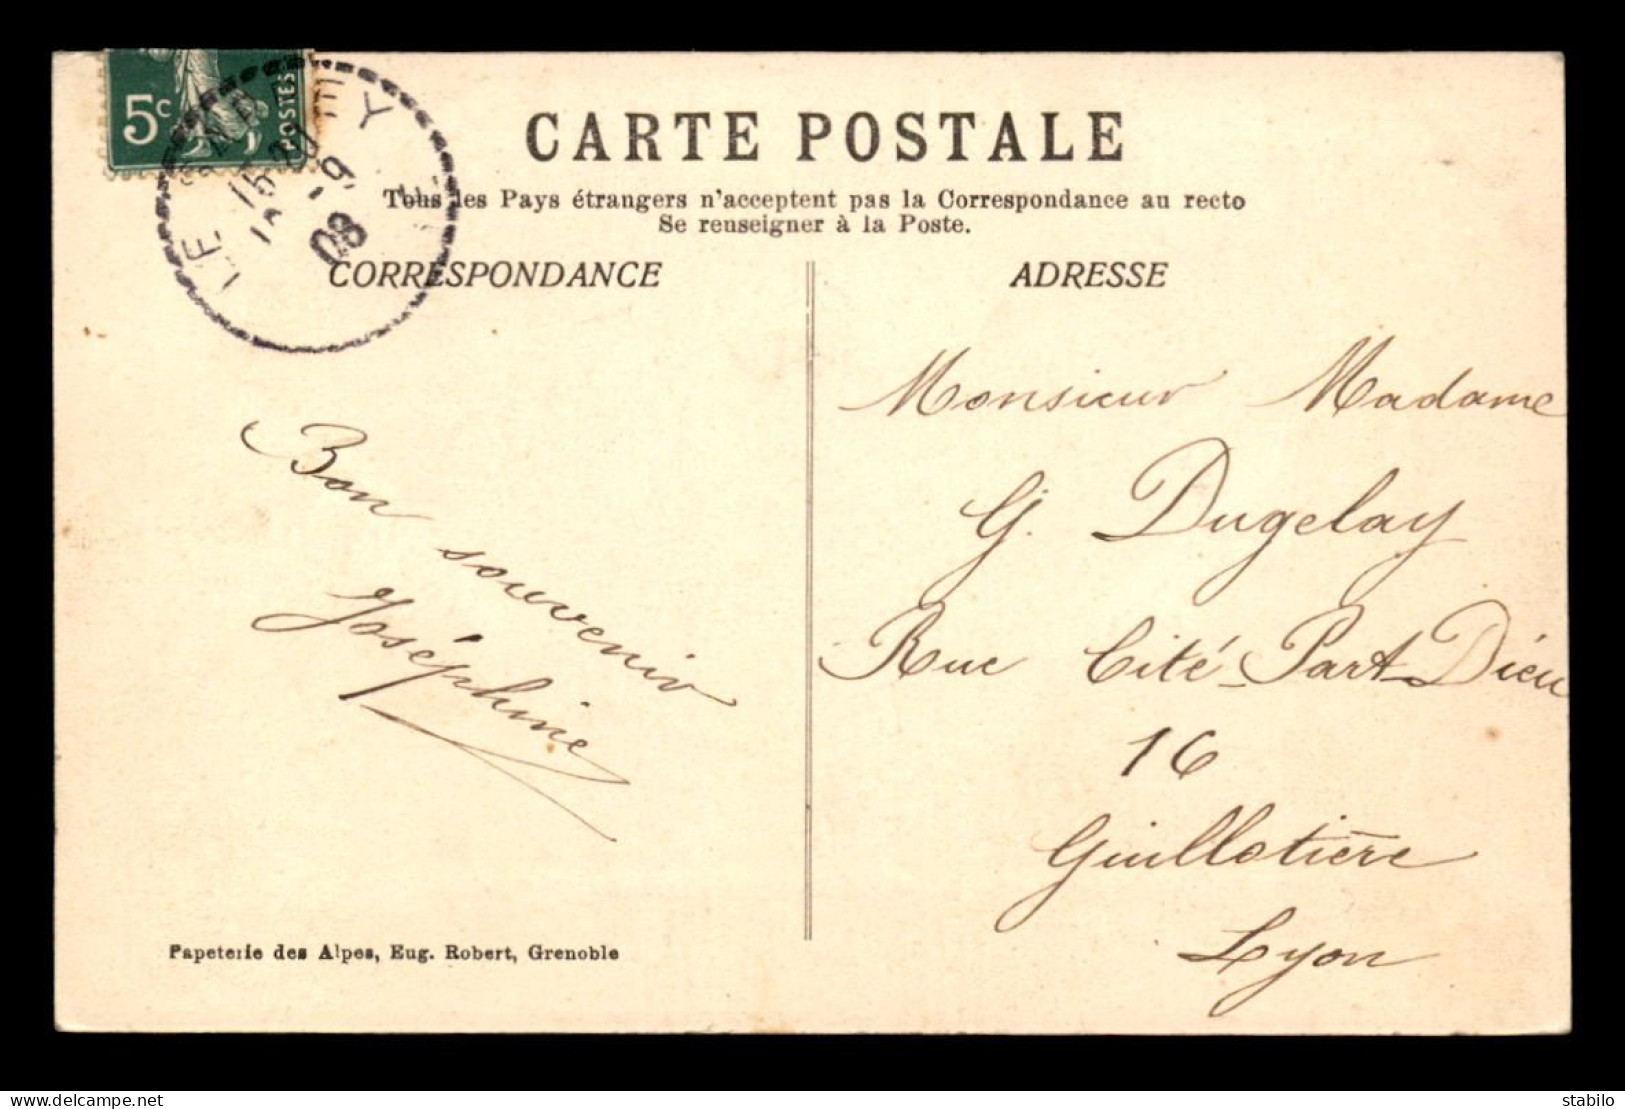 5c
POSTES
LE
15 20
-9
08
CARTE POSTALE
Tous les Pays étrangers n'acceptent pas la Correspondance au recto
Se renseigner à la Poste.
CORRESPONDANCE
ADRESSE
Bon souvenir
Joséphine
Monsieur Madame
G. Dugelay
Rue Cité-Part-Dieu
16
Guillotière
Lyon
Papeterie des Alpes, Eug. Robert, Grenoble
delcampe.net
stabilo